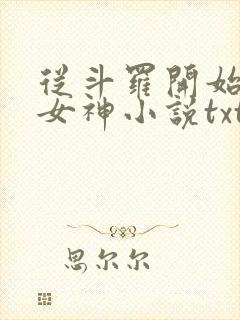 從斗羅開始
女神小說txt
思尔尔